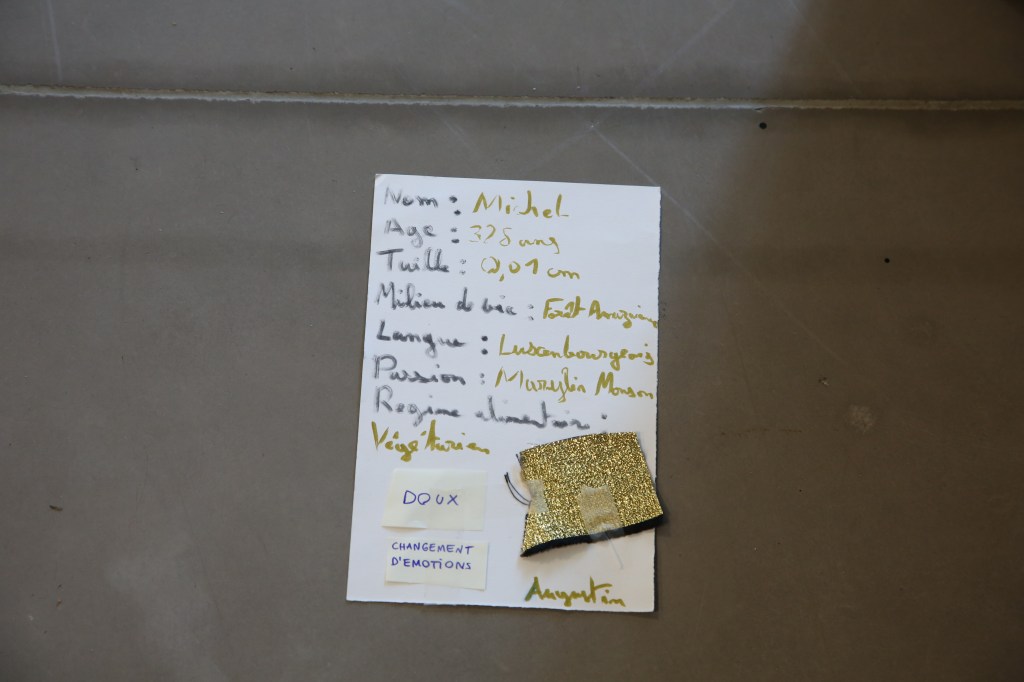 Nom : Michel
Age : 328 ans
Taille : 0,01 cm
Milieu de vie : Forêt Amazonie
Langue : Luxenbourgeois
Passion : Marylin Monson
Regime alimentaire :
Végétarien
DOUX
CHANGEMENT
D'EMOTIONS
Augustin